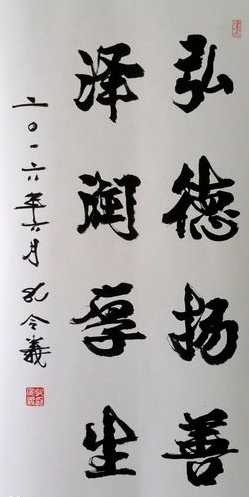 弘德扬善
泽润厚生
二〇一六年六月 孔令义